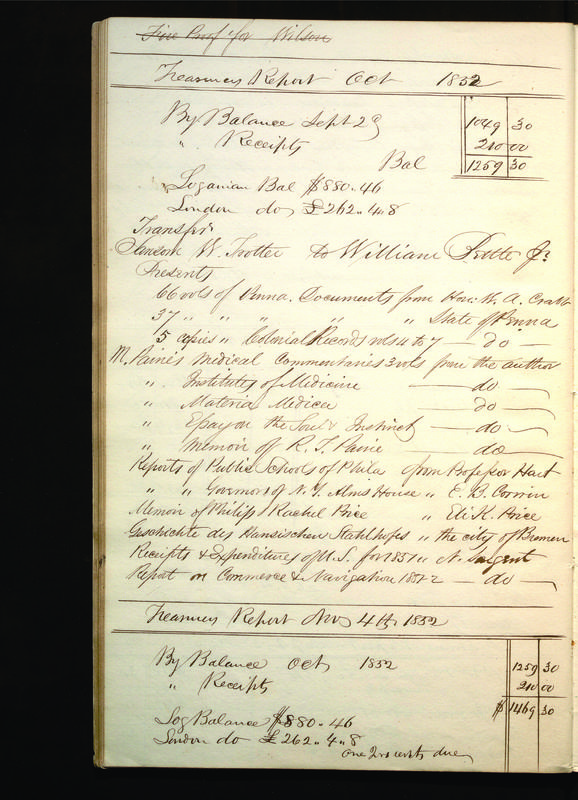 Fine Proof for Wilson
Treasurers Report Oct 1852
By Balance Sept 29 1049 30
" Receipts 210 00
Bal 1259 30
Loganian Bal $880.46
London do £262.4.8
Transfer
W. Trotter to William Jr.
Presents
66 vols of Penna. Documents from Hon. W. A. Crabb
37 " " " " " State of Penna
5 copies " Colonial Records vols 4 to 7 — do —
M. Paine's Medical Commentaries 3 vols from the author
" Institutes of Medicine — do —
" Materia Medica — do —
" Essay on the Soul & Instinct — do —
" Memoir of R. T. Paine — do —
Reports of Public Schools of Phila from Professor Hart
" " Governors of N. Y. Alms House " E. B. Corwin
Memoir of Philip & Rachel Price " Eli K. Price
Geschichte des Hansischen Stahlhofes " the city of Bremen
Receipts & Expenditures of U.S. for 1851 " N. Sargent
Report on Commerce & Navigation 1851-2 — do —
Treasurers Report Nov 4th 1852
By Balance Oct 1852 1259 30
" Receipts 210 00
$ 1469 30
Log Balance $880.46
London do £262.4.8
due